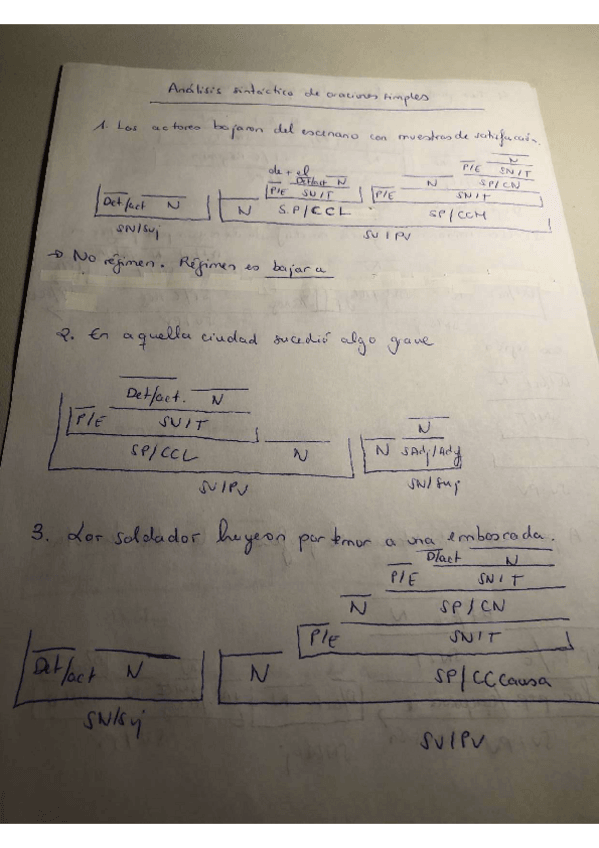 Análisis sintáctico de oraciones simples
1. Los actores bajaron del escenario con muestras de satisfacción.
de + el N
Det/act N P/E SN/T
P/E SN/T N SP/CN
Det/act N N SP/CCL P/E SN/T
SP/CCM
SN/Suj SV/PV
→ No régimen. Régimen es bajar a
2. En aquella ciudad sucedió algo grave
Det/act. N
P/E SN/T N
SP/CCL N N SAdj/Ady
SV/PV SN/Suj
3. Los soldados huyeron por temor a una emboscada.
D/act N
P/E SN/T
N SP/CN
P/E SN/T
Det/act N N SP/CCCausa
SN/Suj
SV/PV